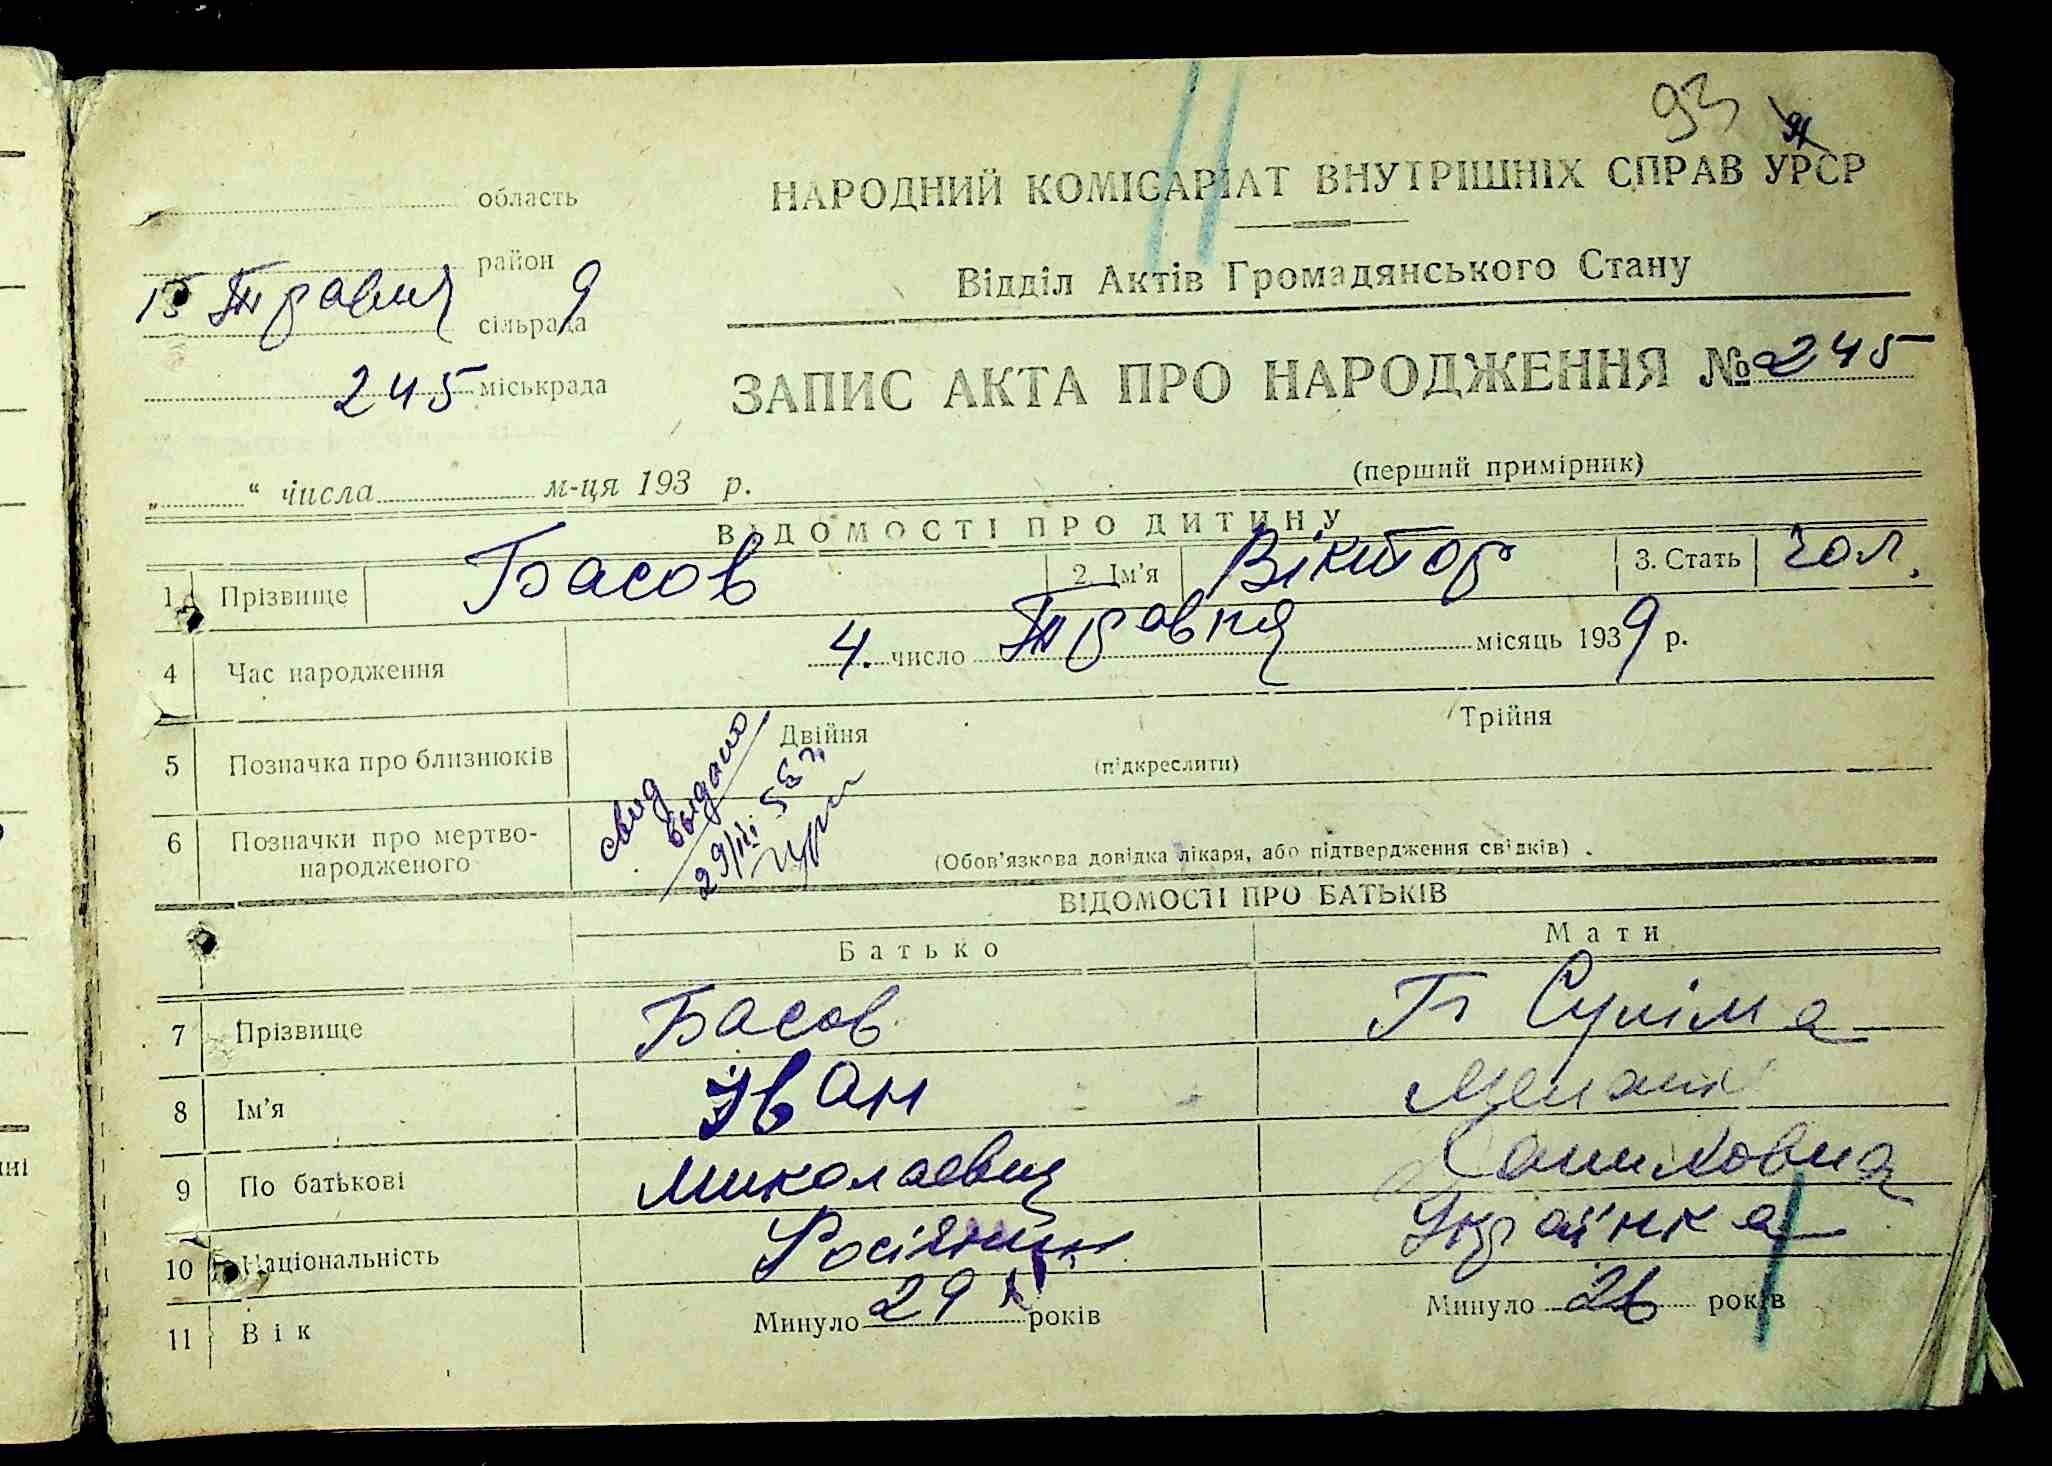 93
94
область
НАРОДНИЙ КОМІСАРІАТ ВНУТРІШНІХ СПРАВ УРСР
район
Відділ Актів Громадянського Стану
15 Травня 9
сільрада
245 міськрада
ЗАПИС АКТА ПРО НАРОДЖЕННЯ № 245
(перший примірник)
„ “ числа м-ця 193 р.
ВІДОМОСТІ ПРО ДИТИНУ
1 Прізвище Басов 2. Ім'я Віктор 3. Стать Чол.
4 Час народження 4. число Травня місяць 1939 р.
5 Позначка про близнюків Двійня Трійня
(підкреслити)
свид
выдано
29/III 58
6 Позначки про мертво-
народженого
(Обов'язкова довідка лікаря, або підтвердження свідків) .
ВІДОМОСТІ ПРО БАТЬКІВ
Батько Мати
7 Прізвище Басов Суліма
8 Ім'я Іван
9 По батькові Миколаевич
10 Національність Росіянин Українка
11 Вік Минуло 29 років Минуло 26 років